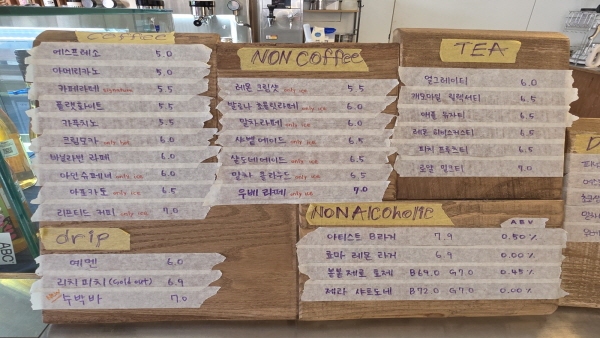 Coffee
에스프레소 5.0
아메리카노 5.0
카페라떼 signature 5.5
플랫화이트 5.5
카푸치노 5.5
크림모카 only hot 6.0
바닐라빈 라떼 6.0
아인슈페너 only ice 6.0
아포카토 only ice 6.5
리프티드 커피 only ice 7.0
drip
예멘 6.0
리치 피치 (Sold out) 6.9
수박바 7.0
NON Coffee
레몬 크림샷 only ice 5.5
발로나 초콜릿라떼 6.0
말차라떼 only ice 6.0
샤벨 에이드 only ice 6.5
살도네 에이드 only ice 6.5
말차 클라우드 only ice 6.5
우베 라떼 only ice 7.0
TEA
얼그레이티 6.0
캐모마일 릴렉서티 6.5
애플 유자티 6.5
레몬 히비스커스티 6.5
피치 프루스티 6.5
로얄 밀크티 7.0
NON Alcoholic
ABV
아티스트 B라거 7.9 0.50%
효마 레몬 라거 6.9 0.00%
볼볼 제로 로제 B69.0 G7.0 0.45%
제라 샤르도네 B72.0 G7.0 0.00%
ABC